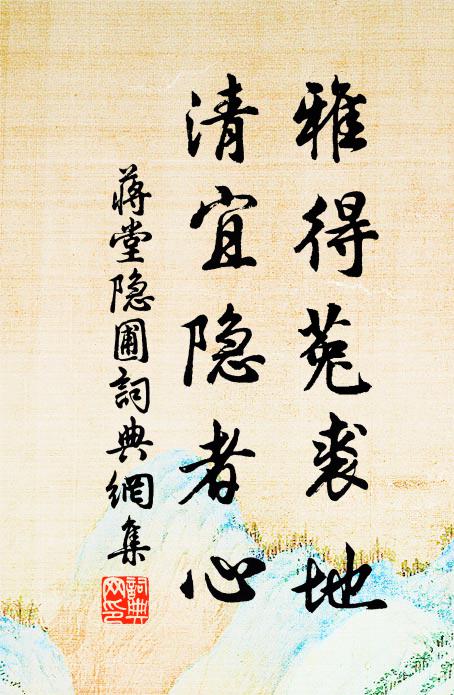 雅得菟裘地
清宜隐者心
蒋堂隐圃詞典網集
詞典